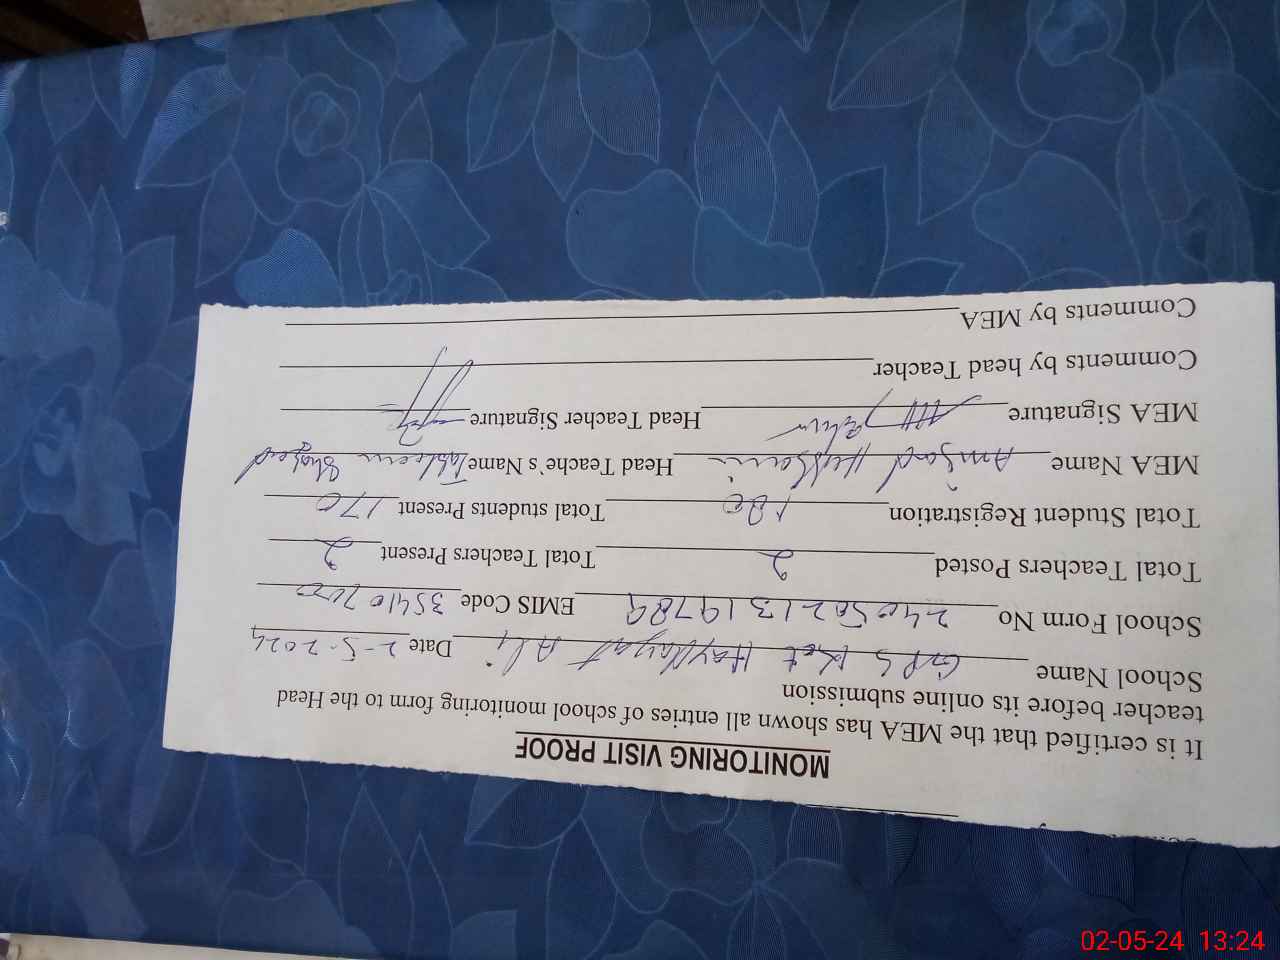 MONITORING VISIT PROOF
It is certified that the MEA has shown all entries of school monitoring form to the Head
teacher before its online submission
School Name GPS Kot Hayat Ali Date 2-5-2024
School Form No 240502131978 EMIS Code 35410700
Total Teachers Posted 2 Total Teachers Present 2
Total Student Registration 180 Total students Present 170
MEA Name Amjad Hussain Head Teache`s Name
MEA Signature Head Teacher Signature
Comments by head Teacher
Comments by MEA
02-05-24 13:24